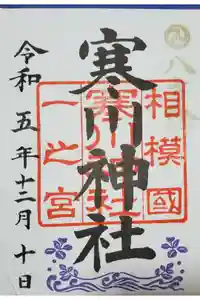 八
相模國
寒川神社
一之宮
寒川神社
令和五年十二月十日